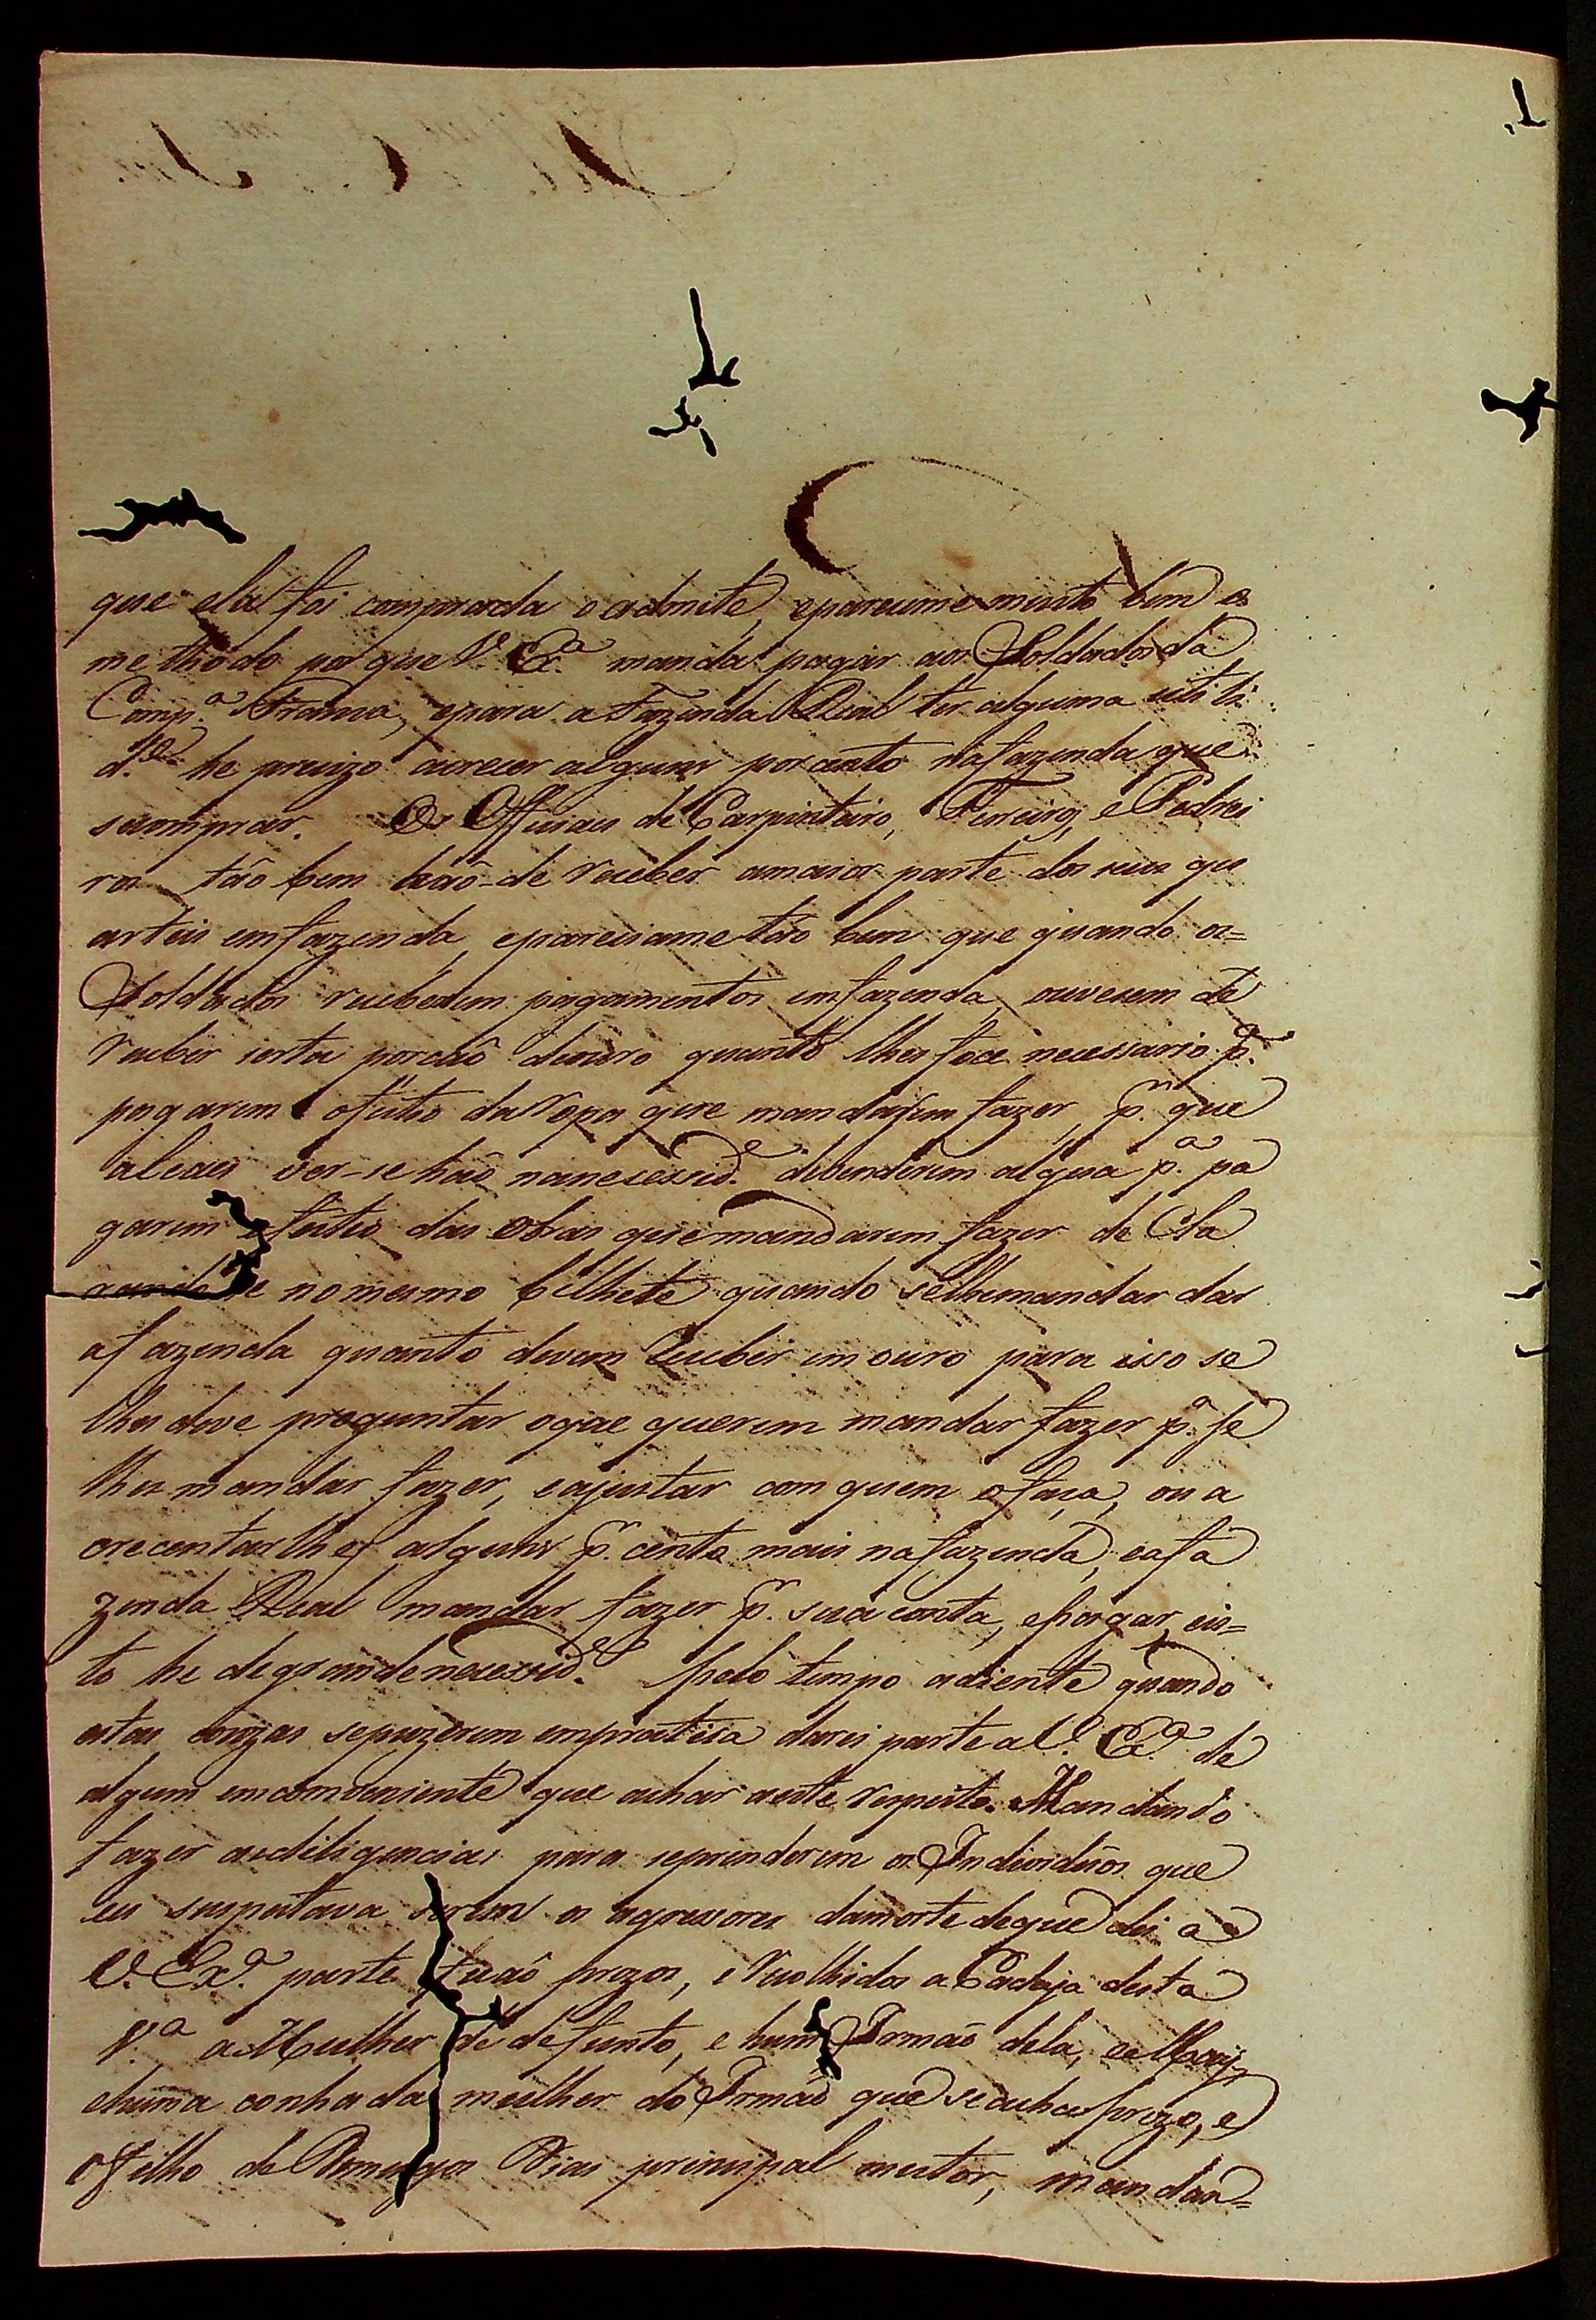 que ela foi comprada o admite, epareceume muito bem o
methodo por que V. Ex.ª manda pagar aos Soldados da
Comp.ª Franca, epara a Fazenda Real ter alguma utili
d.e he precizo acrecer alguns por cento nafazenda que
secomprar. Os Officiaes de Carpinteiro, Ferreiro, e Pedrei
ros tão bem hão-de receber amaior parte dos seus qu
arteis emfazenda, epareciame tão bem que quando os=
Soldados receberem pagamentos emfazenda, ouvesem de
receber serta porcaõ deouro quanto lhes foce necessario p.ª
pagarem ofeitio daropa que mandasem fazer, p.r que
alias ver-se haõ nanecessid.e devenderem algũa p.ª pa
garem ofeitio das obras que mandarem fazer de Cla
rando se nomesmo bilhete quando selhemandar dar
afazenda quanto devem receber em ouro para isso se
lhes deve preguntar oque querem mandar fazer p.ª se
lhes mandar fazer, eajustar com quem ofaça, ou a
crecentar lhes alguns p.r cento mais nafazenda, eafa
zenda Real mandar fazer p.r sua conta, epagar, eis=
to he degrande necessid.e Pelo tempo adiente quando
estas couzas sepuzerem empratica darei parte aV. Ex.ª de
algum emconveniente que achar aeste respeito. Mandando
fazer asdiligencias para seprenderem os Individuos que
eu suspeitava serem os agressores damorte deque dei a
V. Ex.ª parte ficaõ prezos, e recolhidos a Cadeja desta
V.ª a Mulher do defunto, e hum Irmaõ dela, e a Mai,
ehuma conhada mulher do Irmaõ que seacha prezo, e
ofilho de Domingos Dias principal mutor, mandan=